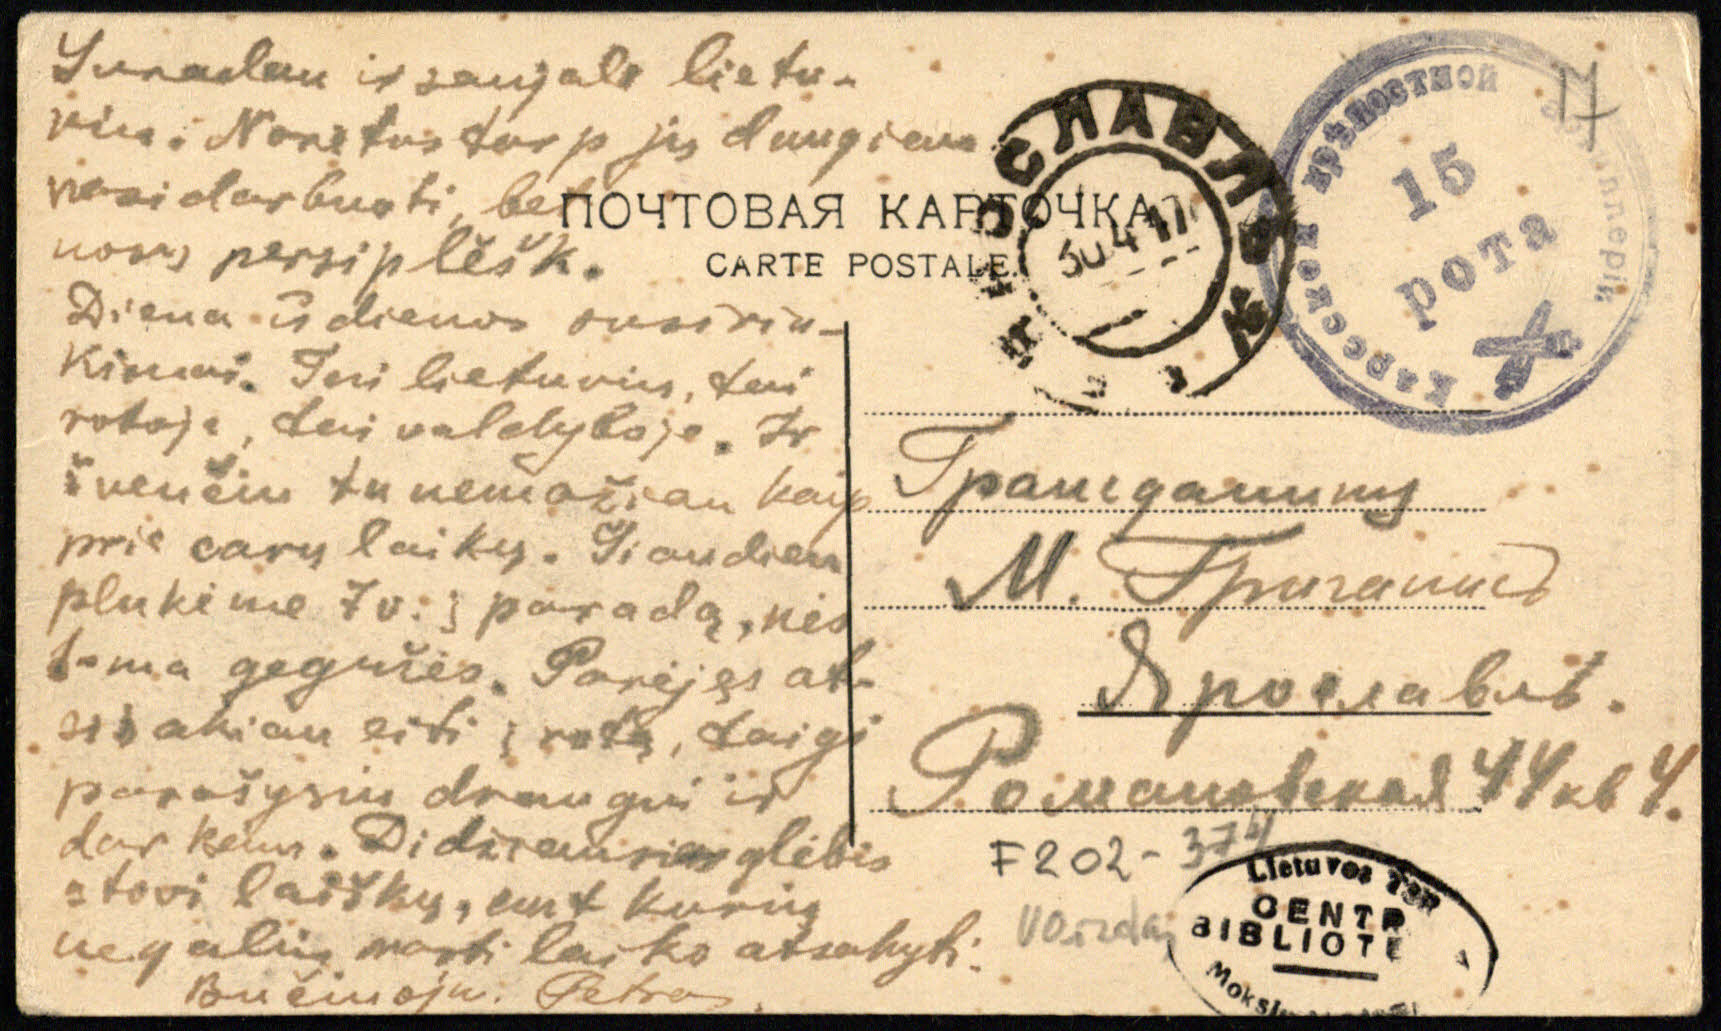 Suradau ir saujalę lietu-
vių. Norėtųs tarp jų daugiau
pasidarbuoti, bet
noru persiplėšk.
Diena iš dienos susirin-
kimai. Tai lietuvių, tai
rotoje, tai valdyboje. Ir
švenčiu tu nemažiau kaip
prie carų laikų. Šiandien
plukėme 7 v. į paradą, nės
gegužės. Parėjęs at-
sisakiau eiti į rotą, taigi
parašysiu draugui ir
dar kam. Didžiausias glėbis
stovi laiškų, ant kurių
negaliu rasti laiko atsakyti.
Bučiuoju. Petras.
ПОЧТОВАЯ КАРТОЧКА
CARTE POSTALE.
ЯРОСЛАВЛЬ
30 4 17
Карсской крѣпостной артиллеріи
15
рота
Гражданину
М. Григанисъ
Ярославль.
Романовская 44 кв 4.
F202-374
Lietuvos TSR
CENTR
BIBLIOTE
Moksl